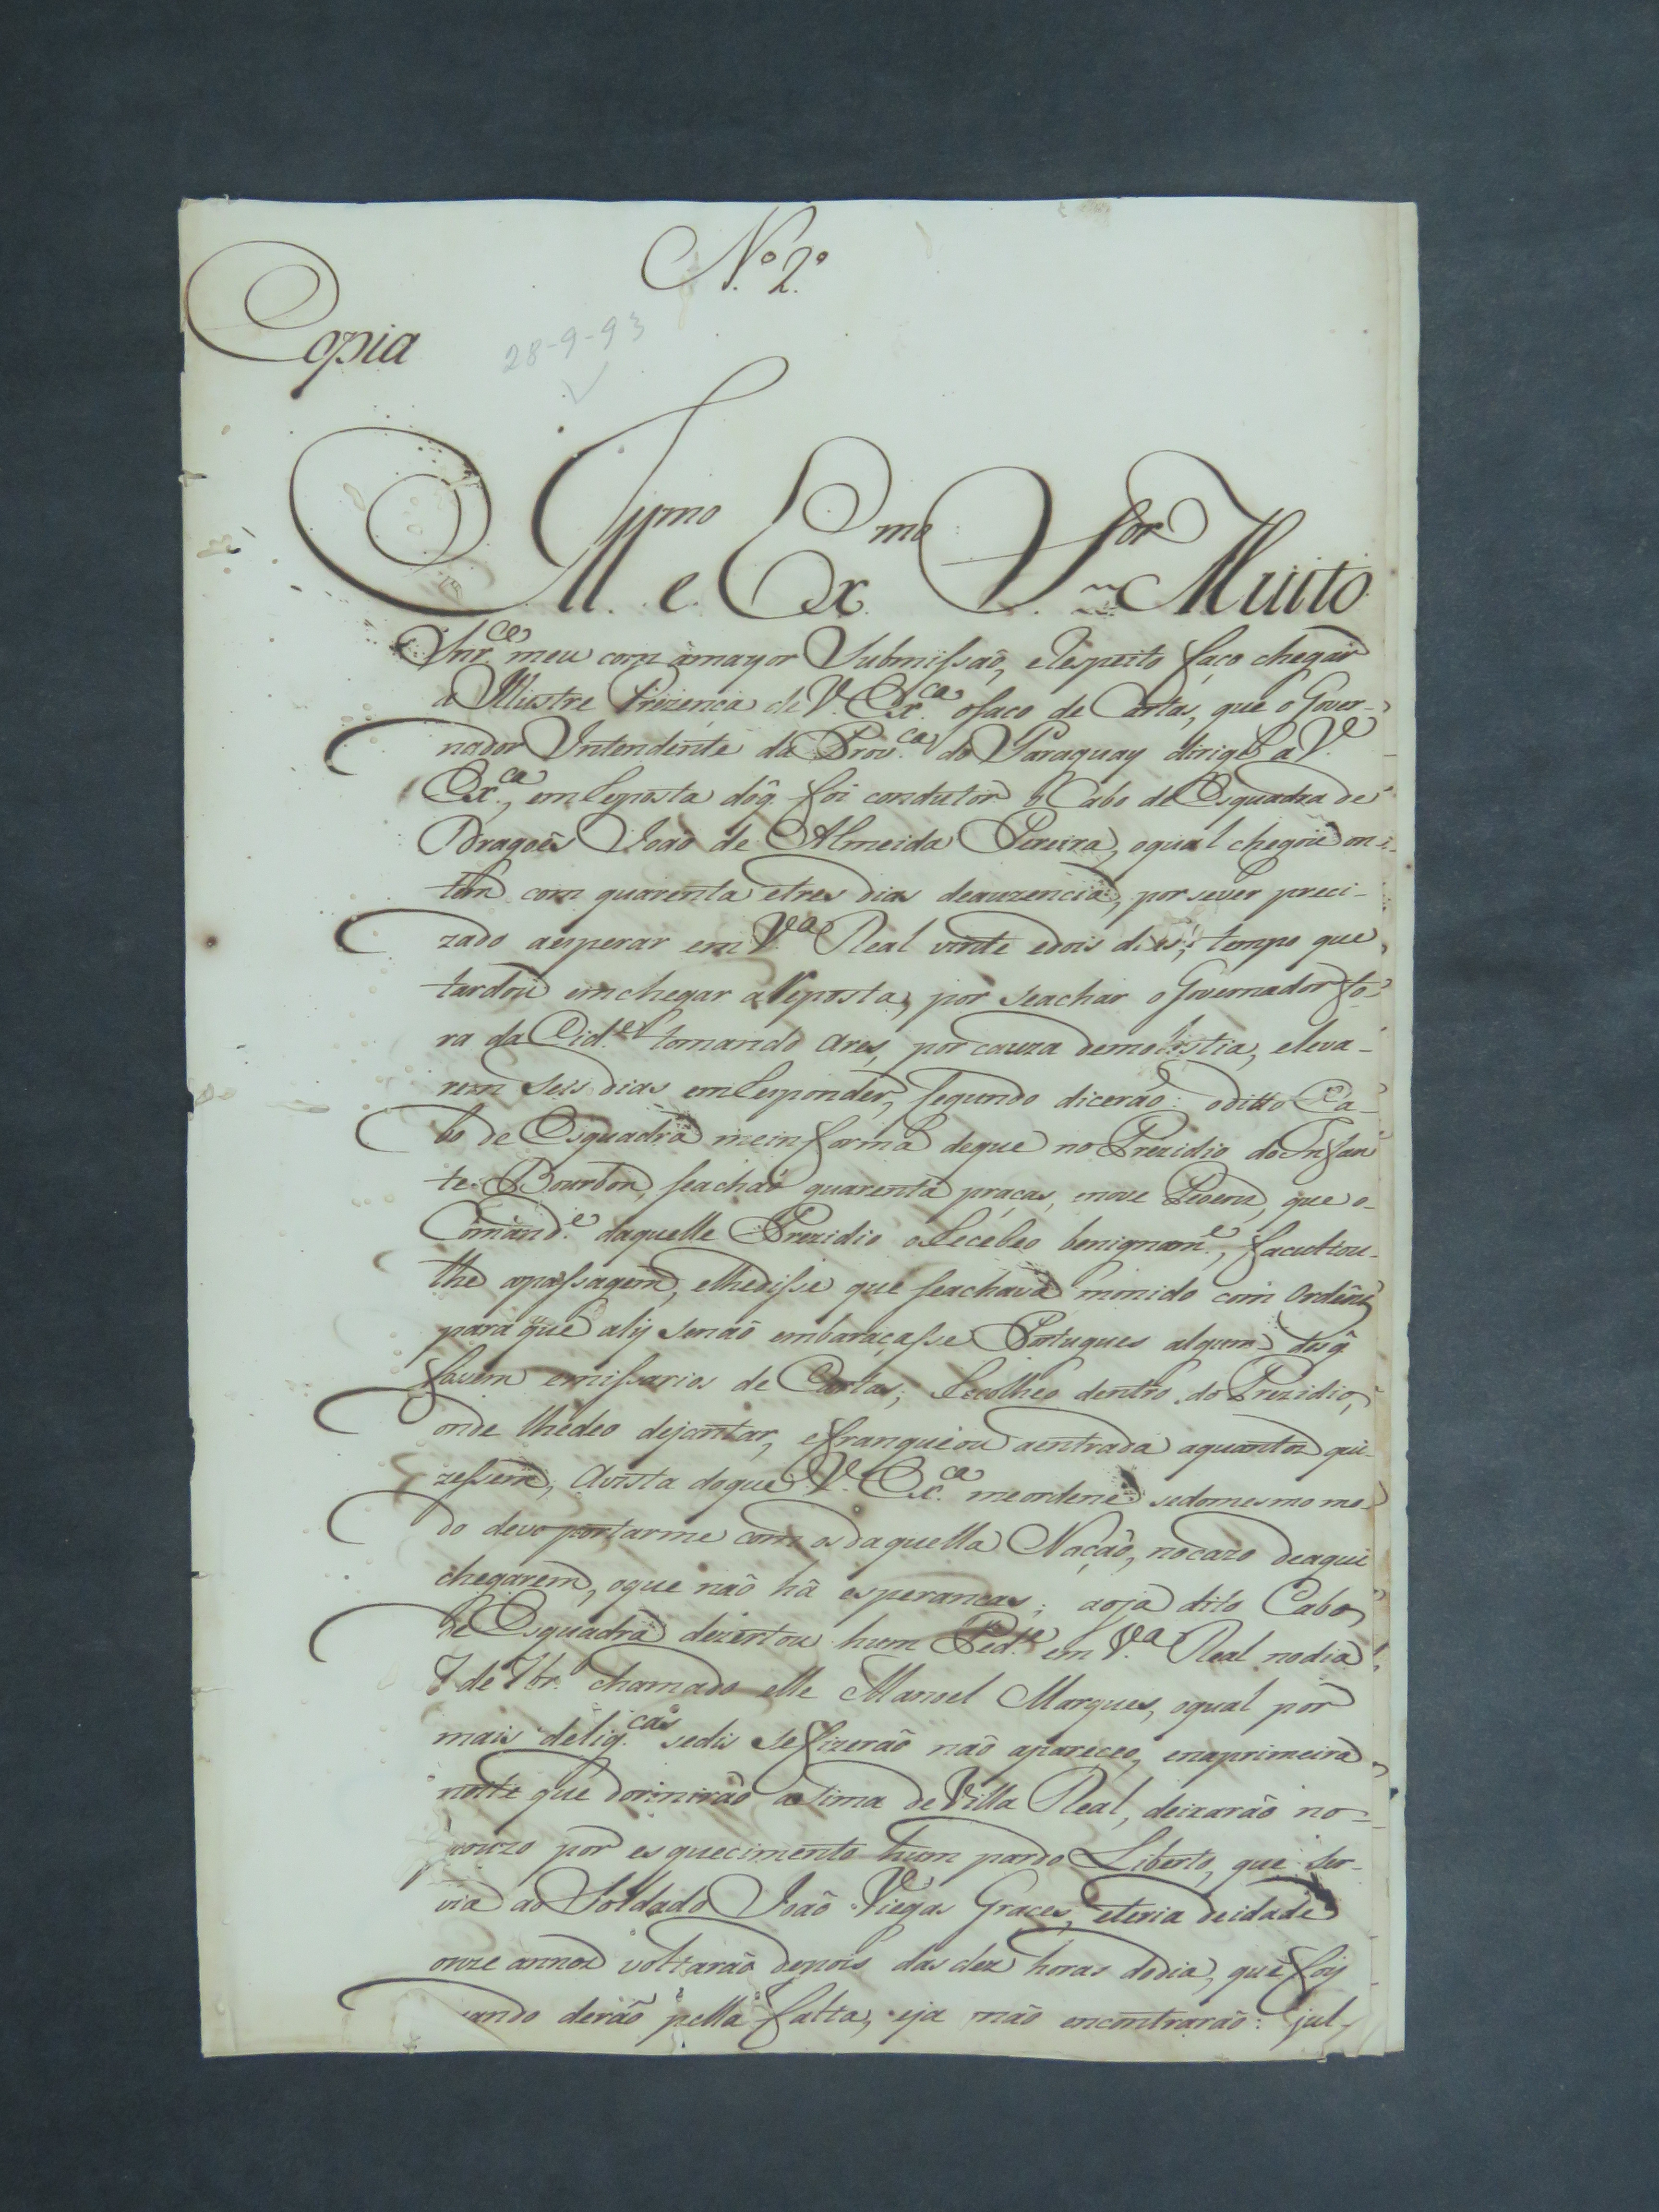 N.º 2.º
Copia
28-9-93
Ill.mo e Ex.mo S.or Muito
Snr.ce meu com a mayor Submissaõ, e Respeito faço chegar
a Illustre Prezença de V. Ex.ca o saco de Cartas, que o Gover-
nador Intendente da Prov.ca do Paraguay dirige a V.
Ex.ca, em Resposta do q̃ foi condutor o Cabo de Esquadra de
Dragoẽs Joaõ de Almeida Pereira, o qual chegou on-
tem com quarenta e tres dias de auzencia, por se ver preci-
zado a esperar em V.a Real vinte e dois dias; tempo que
tardou em chegar a Resposta, por se achar o Governador fo-
ra da Cid.e tomando ares, por cauza de molestia, e leva-
rem seis dias em Responder, segundo dicerão: o ditto Ca-
bo de Esquadra me informa de que no Prezidio do Infan
te Bourbon, se achaõ quarenta praças, e nove Peoens, que o
Comand.e daquelle Prezidio o Recebeo benignam.e, facultou-
lhe a passagem, e lhe disse que se achava monido com Ordẽns
para que aly se naõ embaraçasse Portugues algum dos q̃
fossem emissarios de Cartas; Recolheo dentro do Prezidio,
onde lhe deo de jantar, e franqueou a entrada a quantos qui-
zessem, A vista do que V. Ex.ca me ordene se do mesmo mo-
do devo portarme com os daquella Nação, no cazo de aqui
chegarem, o que naõ hâ esperancas; ao ja dito Cabo
de Esquadra dezertou hum Ped.e em V.a Real no dia
7 de 7br.º chamado elle Manoel Marques, o qual por
mais delig.cas se dis se fizerão naõ apareceo, e na primeira
noite que dormirão asima de Villa Real, deixarão no
pouzo por esquecimento hum pardo Liberto, que ser-
via ao Soldado Joaõ Viegas Graces, e teria de idade
onze annos voltarão depois das dez horas do dia, que foy
quando deraõ pella falta, e ja não encontrarão: jul-